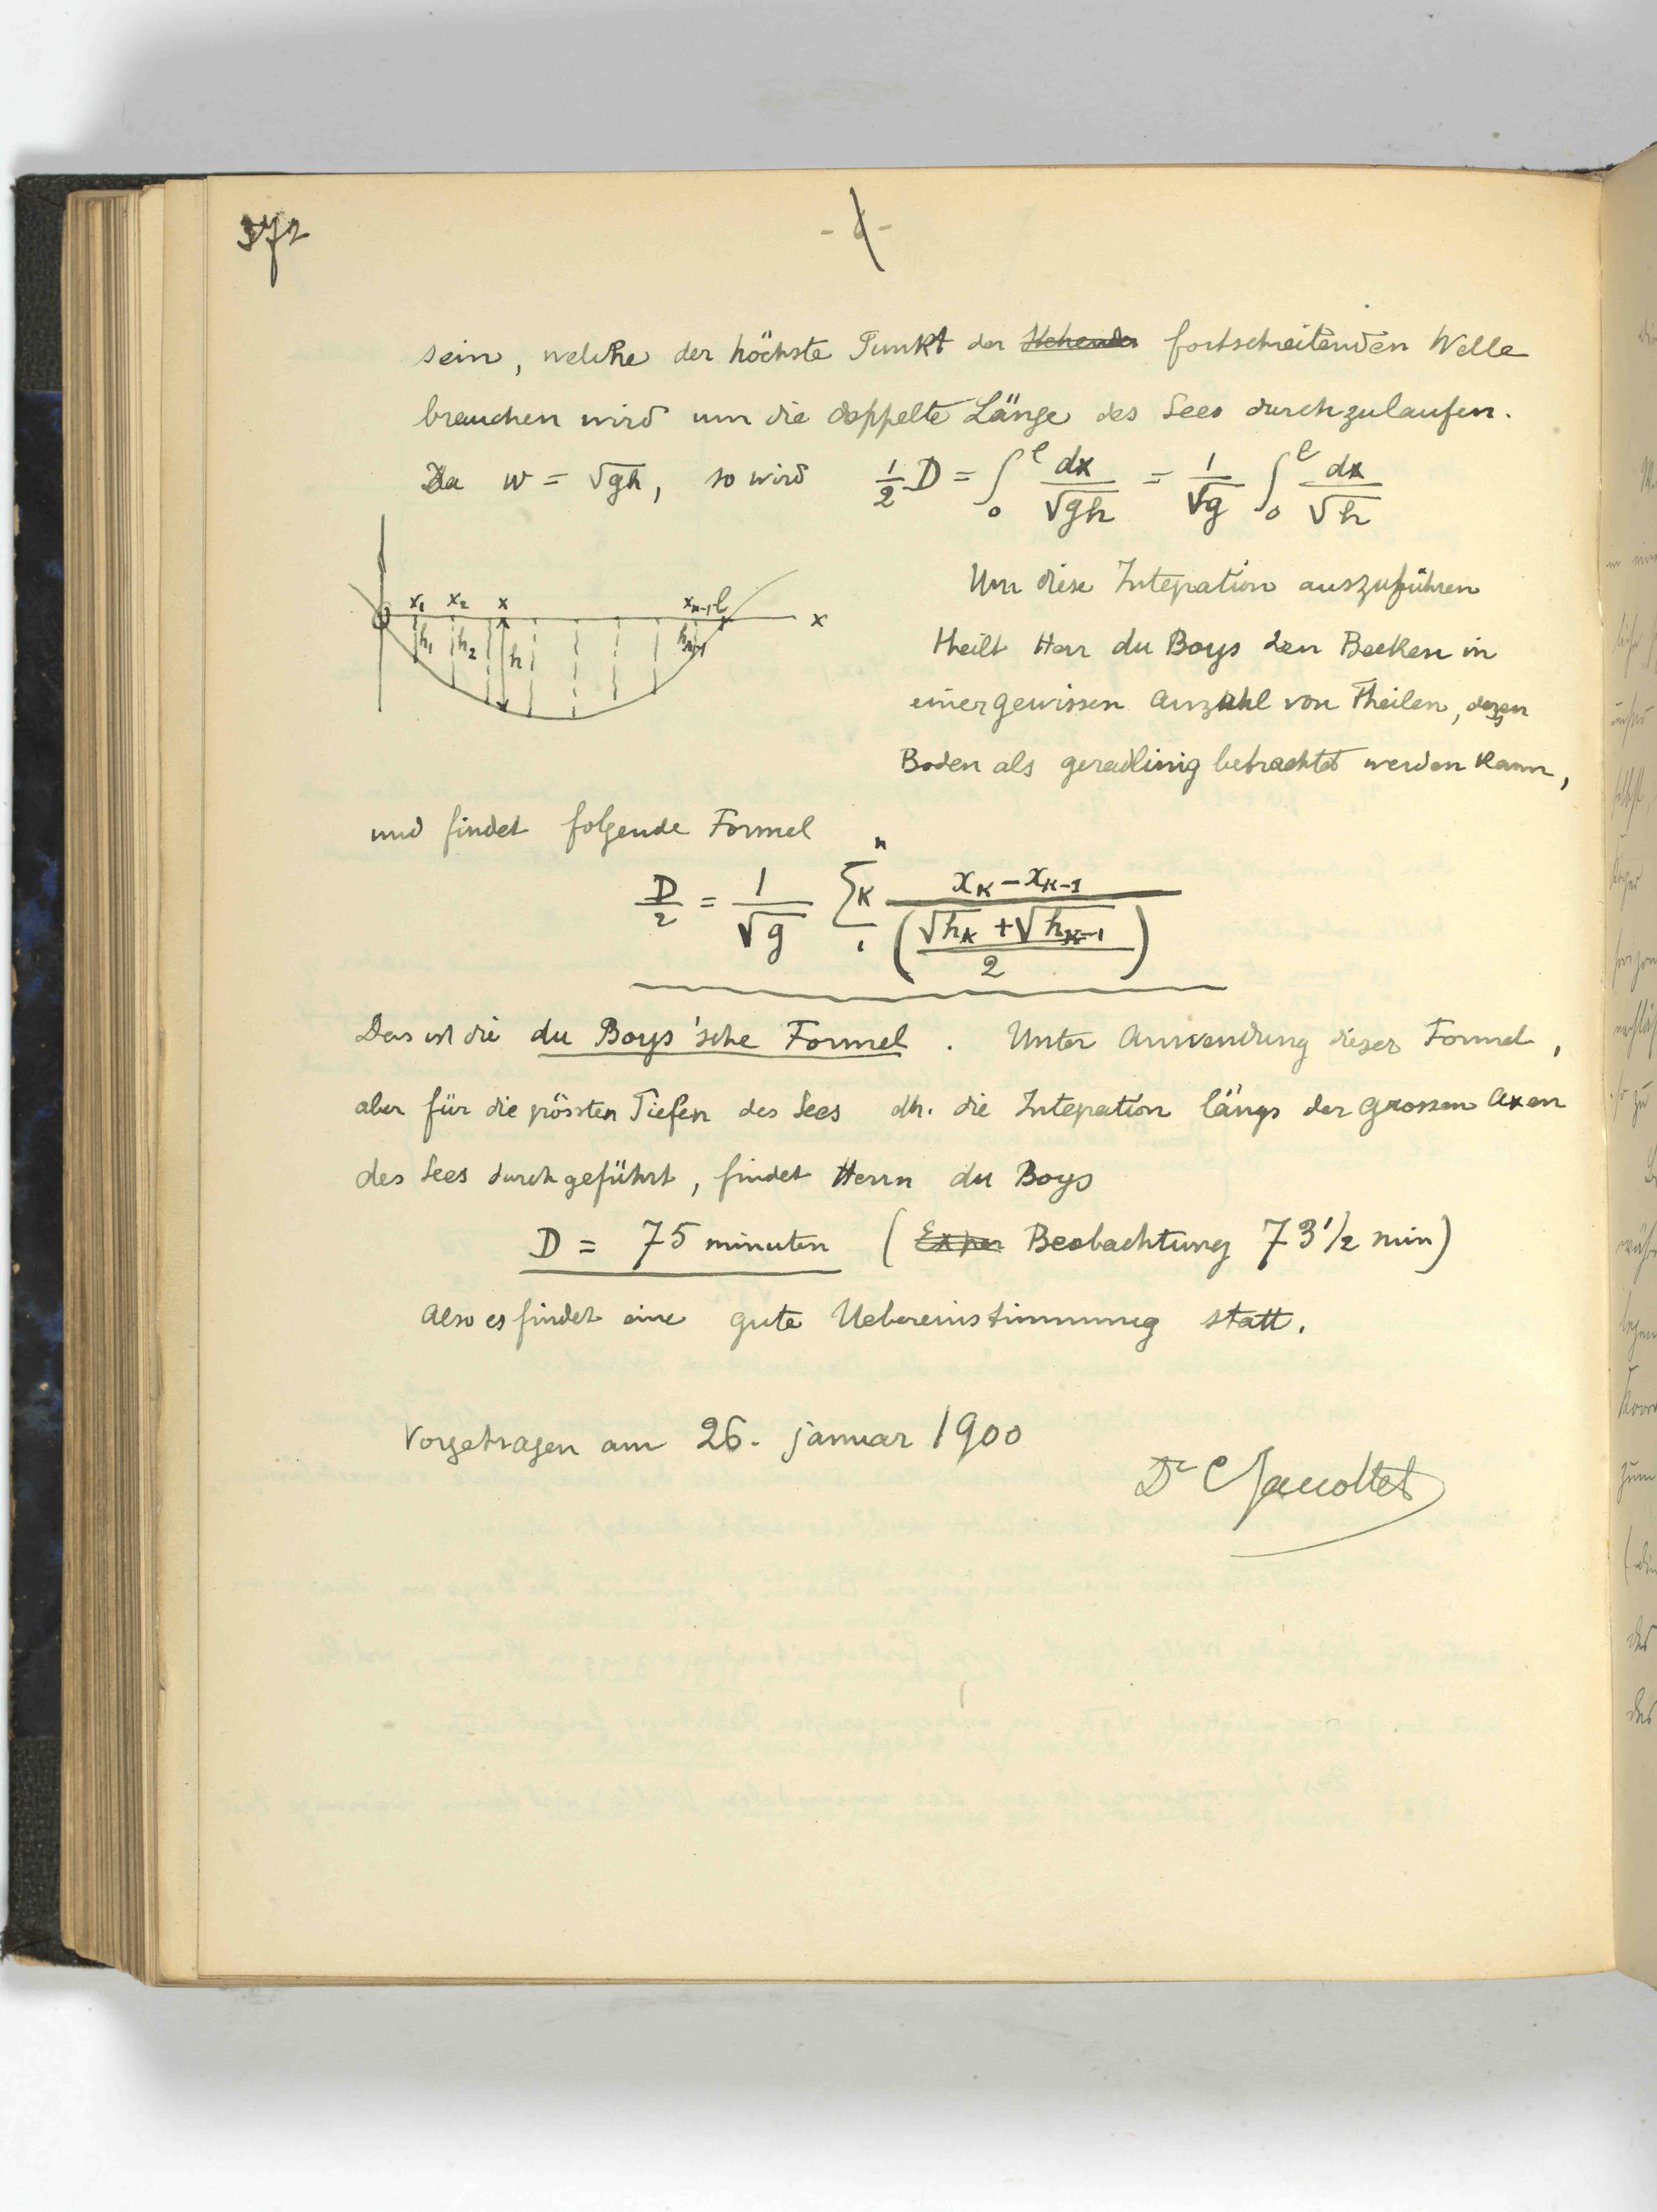 372
sein, welche der höchste Punkt der stehenden fortschreitenden Welle
brauchen wird um die doppelte Länge des Sees durchzulaufen.
Da w = √gh, so wird ½ D = ∫₀ˡ dx/√gh = 1/√g ∫₀ˡ dx/√h
x₁ x₂ x xₙ₋₁ l x
h₁ h₂ h hₙ₋₁
Um diese Integration auszuführen
theilt Herr du Boys den Becken in
einer gewissen Anzahl von Theilen, deren
Boden als geradlinig betrachtet werden kann,
und findet folgende Formel
D/2 = 1/√g Σₖ₁ⁿ (xₖ − xₖ₋₁)/((√hₖ + √hₖ₋₁)/2)
Das ist die du Boys'sche Formel. Unter Anwendung dieser Formel,
aber für die grössten Tiefen des Sees dh. die Integration längs der grossen Axen
des Sees durchgeführt, findet Herrn du Boys
D = 75 minuten (Exper Beobachtung 73 1/2 min)
Also es findet eine gute Uebereinstimmung statt.
Vorgetragen am 26. januar 1900
Dr C Jaccottet